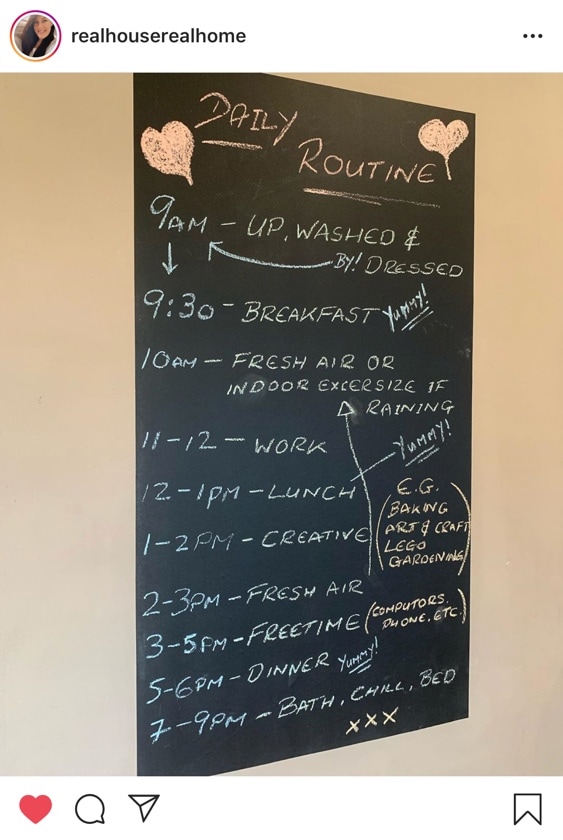 realhouserealhome
DAILY
ROUTINE
9AM - UP, WASHED &
BY! DRESSED
9:30 - BREAKFAST YUMMY!
10AM - FRESH AIR OR
INDOOR EXCERSIZE IF
RAINING
11-12 - WORK
YUMMY!
12-1PM - LUNCH
1-2PM - CREATIVE
(E.G.
BAKING
ART & CRAFT
LEGO
GARDENING)
2-3PM - FRESH AIR
3-5PM - FREETIME (COMPUTORS,
PHONE, ETC.)
5-6PM - DINNER YUMMY!
7-9PM - BATH, CHILL, BED
XXX